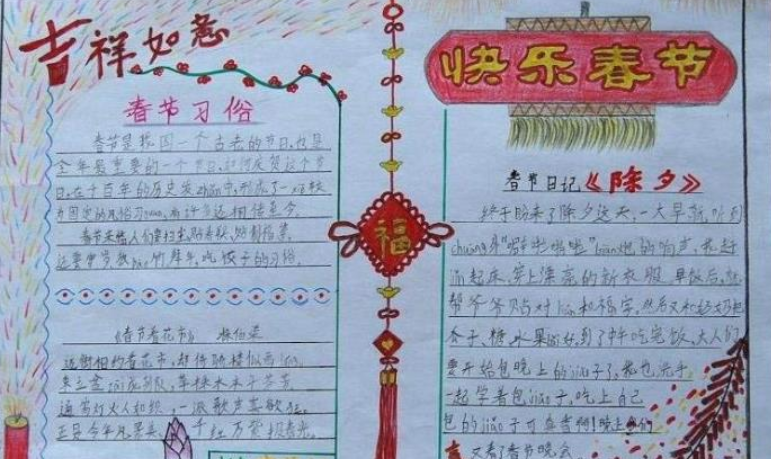 吉祥如意
春节习俗
春节是我国一个古老的节日,也是
全年最重要的一个节日,如何庆贺这个节
日,在千百年的历史发zhǎn中,形成了一些较
为固定的风俗习guàn,有许多还相传至今。
春节来临人们要扫尘,贴春联,贴剪纸等,
还要守岁放 竹,拜年,吃饺子的习俗。
《春节看花市》 林伯渠
迈街相约看花市,却倚骑楼似画
成队,草株木本斗芬芳
通宵灯火人如织,一派歌声喜欲狂。
正是今年风景美,千红万紫报春光。
福
快乐春节
春节日记《除夕》
终于盼来了除夕这天,一大早就听到
chuāng外“啪啦啪啦” 炮的响声,我赶
jǐn起床,穿上漂亮的新衣服。早饭后,就
帮爷爷贴对 和福字,然后又和奶奶把
杏子、糖、水果 好,到了中午吃完饭,大人们
要开始包晚上的jiǎo子了,我也洗手
一起学着包jiǎo子,吃上自己
包的jiǎo子可真香啊!晚上我们
又看了春节晚会